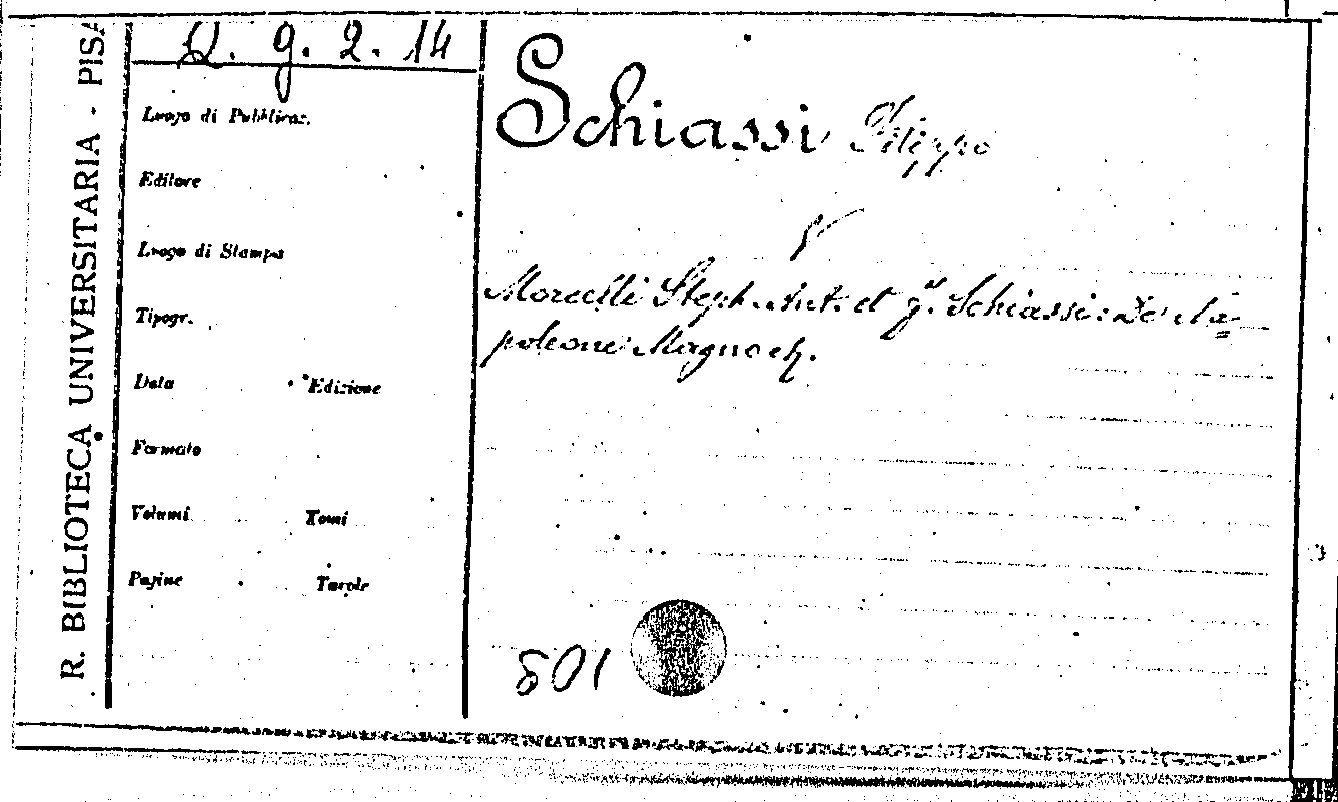 R. BIBLIOTECA UNIVERSITARIA - PISA
Q. g. 2. 14
Luogo di Pubblicaz.
Editore
Luogo di Stampa
Tipogr.
Data Edizione
Formato
Volumi Tomi
Pagine Tavole
Schiassi Filippo
V
Morcelli Steph. Ant. et Schiassi: De Na=
poleone Magno
801